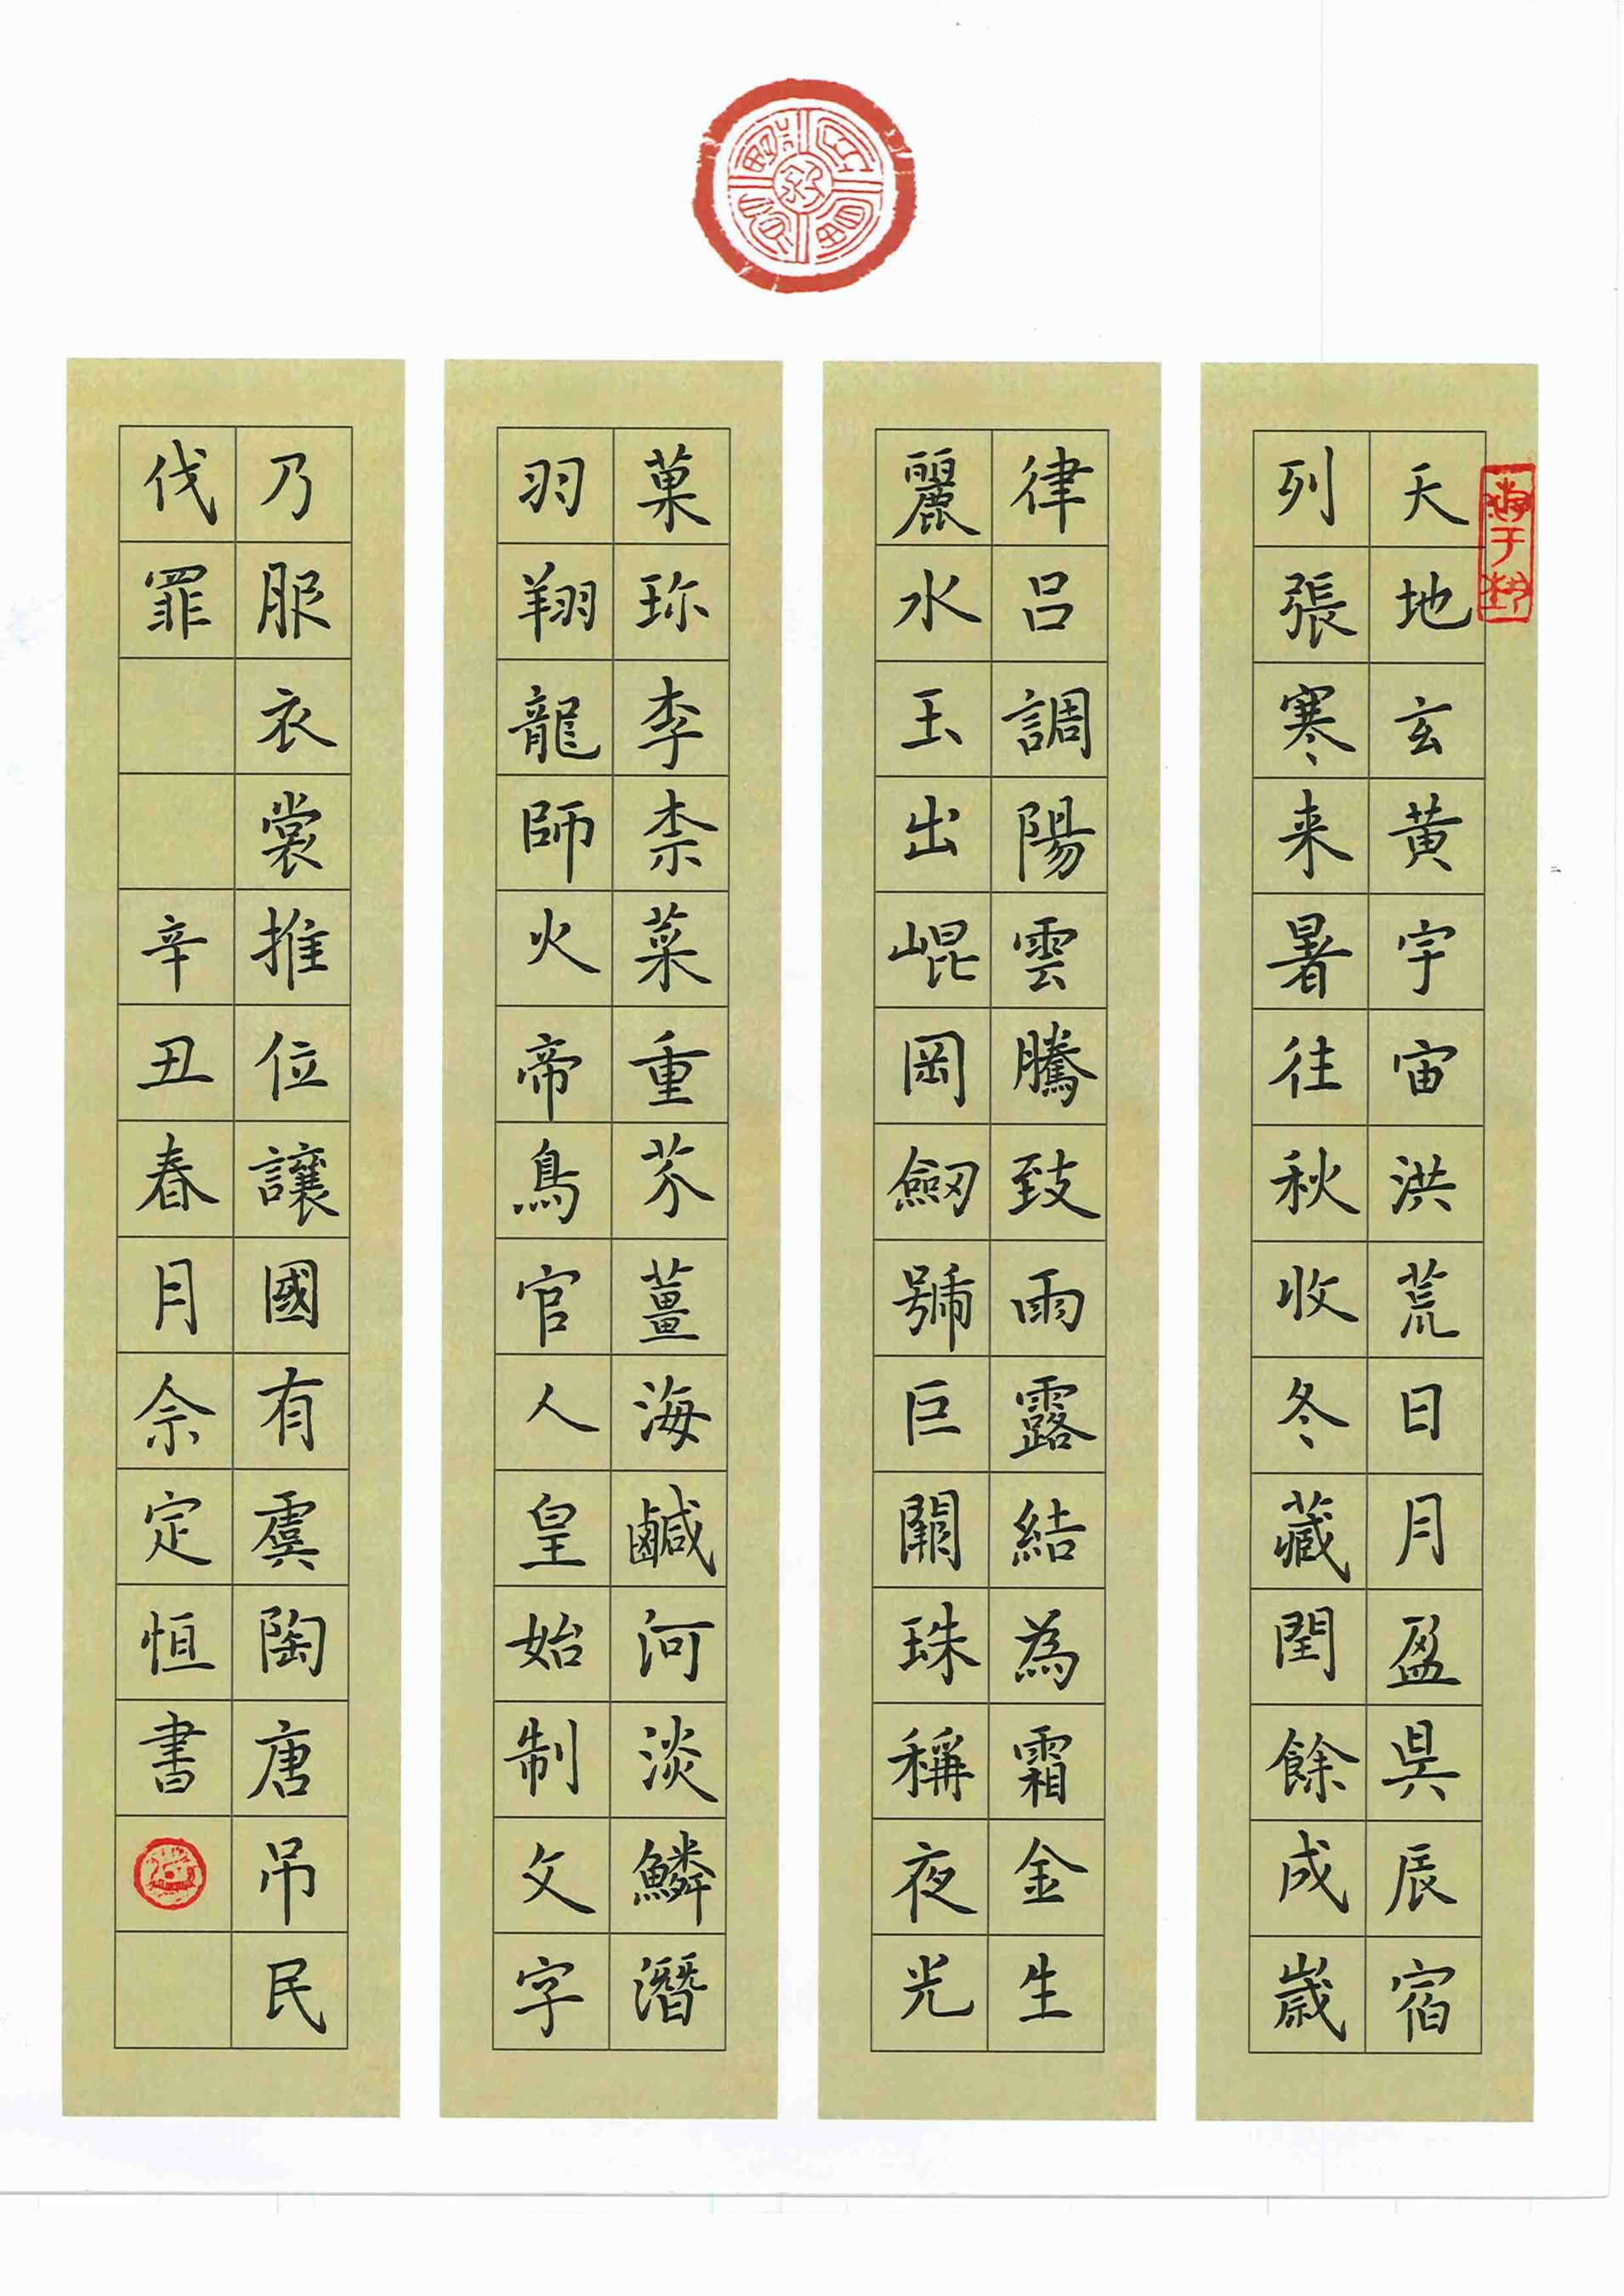 天地玄黃宇宙洪荒日月盈昃辰宿
列張寒来暑往秋收冬藏閏餘成歲
律呂調陽雲騰致雨露結為霜金生
麗水玉出崐岡劒號巨闕珠稱夜光
菓珎李柰菜重芥薑海鹹河淡鱗潛
羽翔龍師火帝鳥官人皇始制文字
乃服衣裳推位讓國有虞陶唐吊民
伐罪
辛丑春月佘定恒書
游于藝